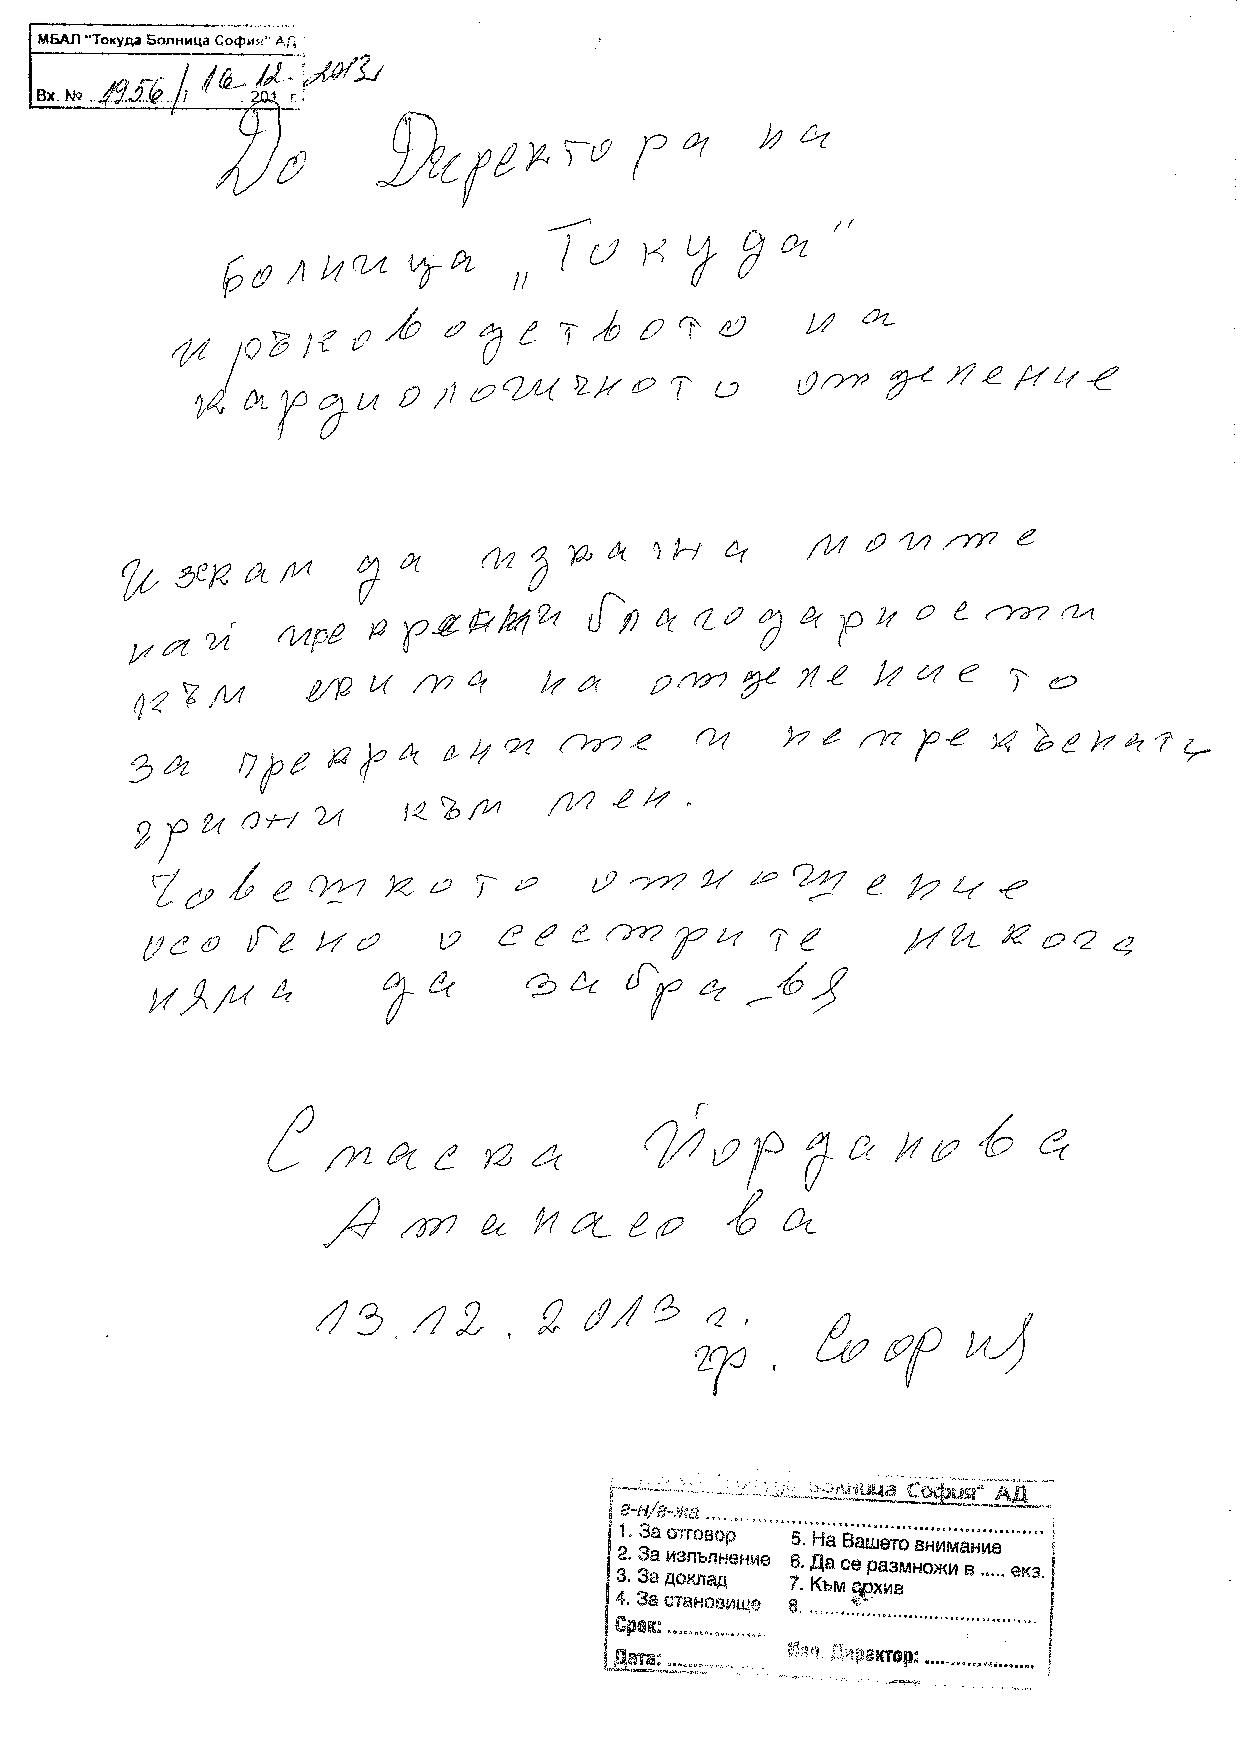 МБАЛ "Токуда Болница София" АД
Вх. № 1956 / 16.12.2013г
201 г.
До Директора на
болница „Токуда"
и ръководството на
кардиологичното отделение
Искам да изкажа моите
най прекрасни благодарности
към екипа на отделението
за прекрасните и непрекъснати
грижи към мен.
Човешкото отношение
особено о сестрите никога
няма да забравя
Спаска Йорданова
Атанасова
13.12.2013 г.
гр. София
Болница София" АД
г-н/г-жа
1. За отговор
5. На Вашето внимание
2. За изпълнение
6. Да се размножи в ..... екз.
3. За доклад
7. Към архив
4. За становище
8.
Срок:
Дата:
Изп. Директор: